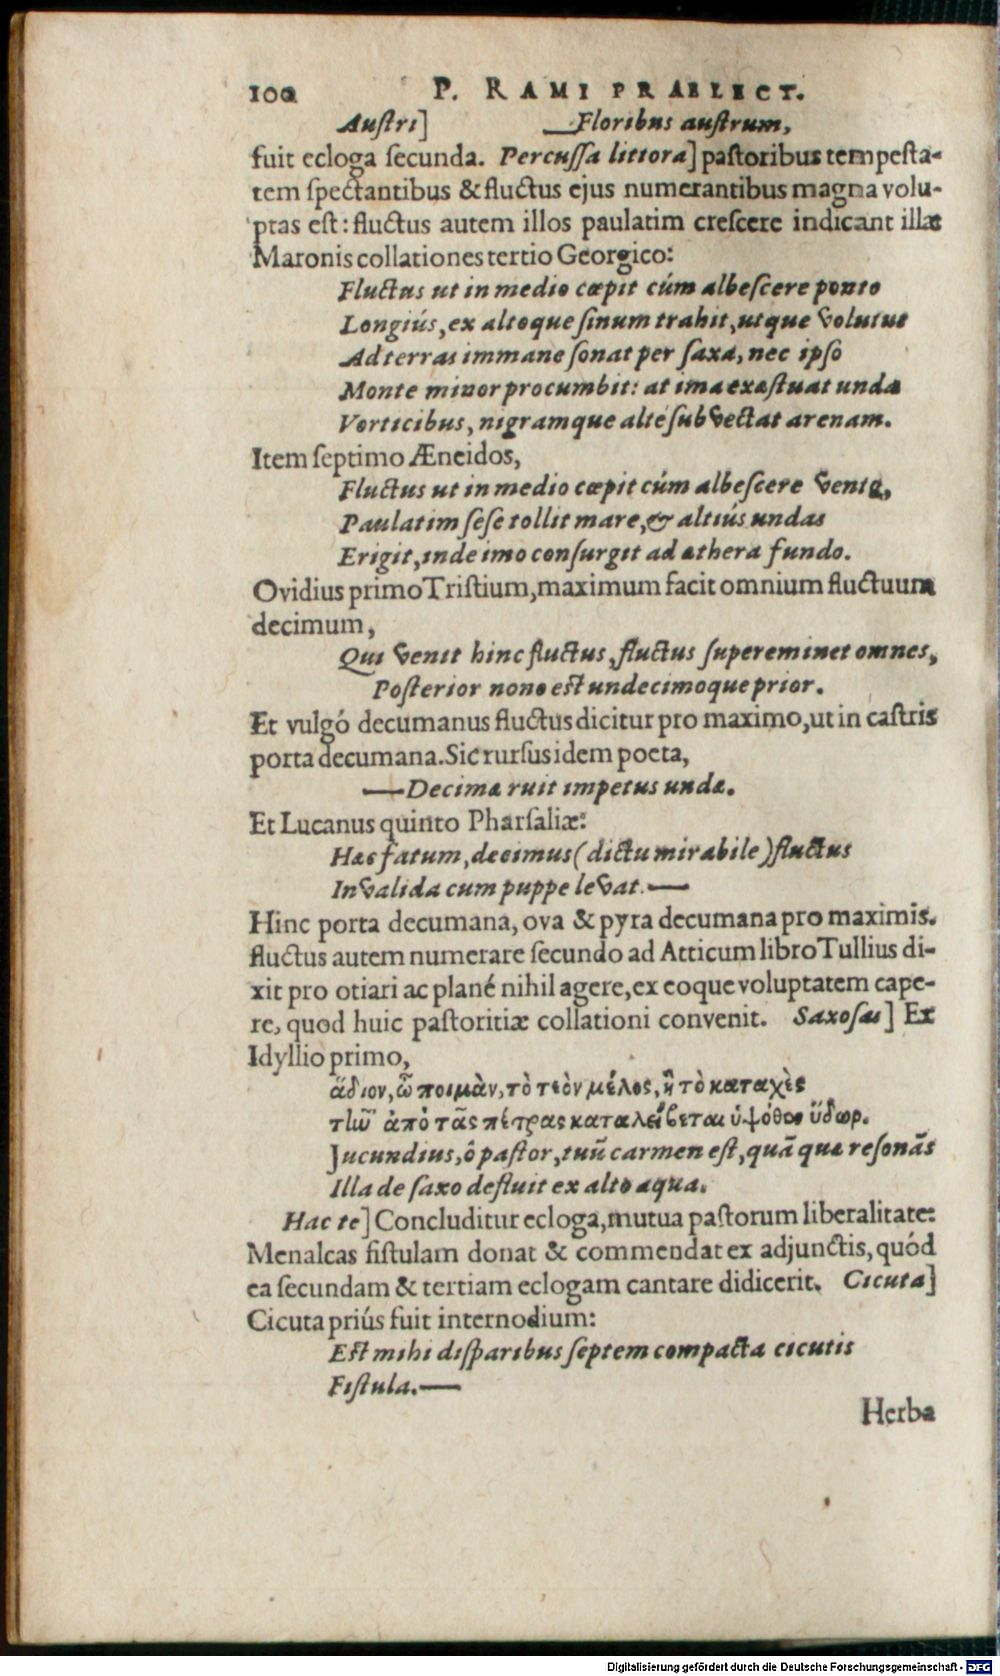 100 P. RAMI PRAELECT.
Austri] —Floribus austrum,
fuit ecloga secunda. Percussa littora] pastoribus tempesta-
tem spectantibus & fluctus ejus numerantibus magna volu-
ptas est: fluctus autem illos paulatim crescere indicant illæ
Maronis collationes tertio Georgico:
Fluctus ut in medio cœpit cúm albescere ponto
Longiús, ex altoque sinum trahit, utque volutus
Ad terras immane sonat per saxa, nec ipso
Monte minor procumbit: at ima exæstuat unda
Vorticibus, nigramque alté subvectat arenam.
Item septimo Æneidos,
Fluctus ut in medio cœpit cúm albescere vento,
Paulatim sese tollit mare, & altiús undas
Erigit, inde imo consurgit ad æthera fundo.
Ovidius primo Tristium, maximum facit omnium fluctuum
decimum,
Qui venit hinc fluctus, fluctus supereminet omnes,
Posterior nono est undecimoque prior.
Et vulgó decumanus fluctus dicitur pro maximo, ut in castris
porta decumana. Sic rursus idem poeta,
—Decimæ ruit impetus undæ.
Et Lucanus quinto Pharsaliæ:
Hæc fatum, decimus (dictu mirabile) fluctus
Invalida cum puppe levat.—
Hinc porta decumana, ova & pyra decumana pro maximis.
fluctus autem numerare secundo ad Atticum libro Tullius di-
xit pro otiari ac plané nihil agere, ex eoque voluptatem cape-
re, quod huic pastoritiæ collationi convenit. Saxosas] Ex
Idyllio primo,
ἅδιον, ὦ ποιμὰν, τὸ τεὸν μέλος, ἢ τὸ καταχὲς
τῆν' ἀπὸ τᾶς πέτρας καταλείβεται ὑψόθεν ὕδωρ.
Jucundius, ô pastor, tuũ carmen est, quã quæ resonãs
Illa de saxo defluit ex alto aqua.
Hac te] Concluditur ecloga, mutua pastorum liberalitate:
Menalcas fistulam donat & commendat ex adjunctis, quód
ea secundam & tertiam eclogam cantare didicerit. Cicuta]
Cicuta priús fuit internodium:
Est mihi disparibus septem compacta cicutis
Fistula.—
Herba
Digitalisierung gefördert durch die Deutsche Forschungsgemeinschaft - DFG